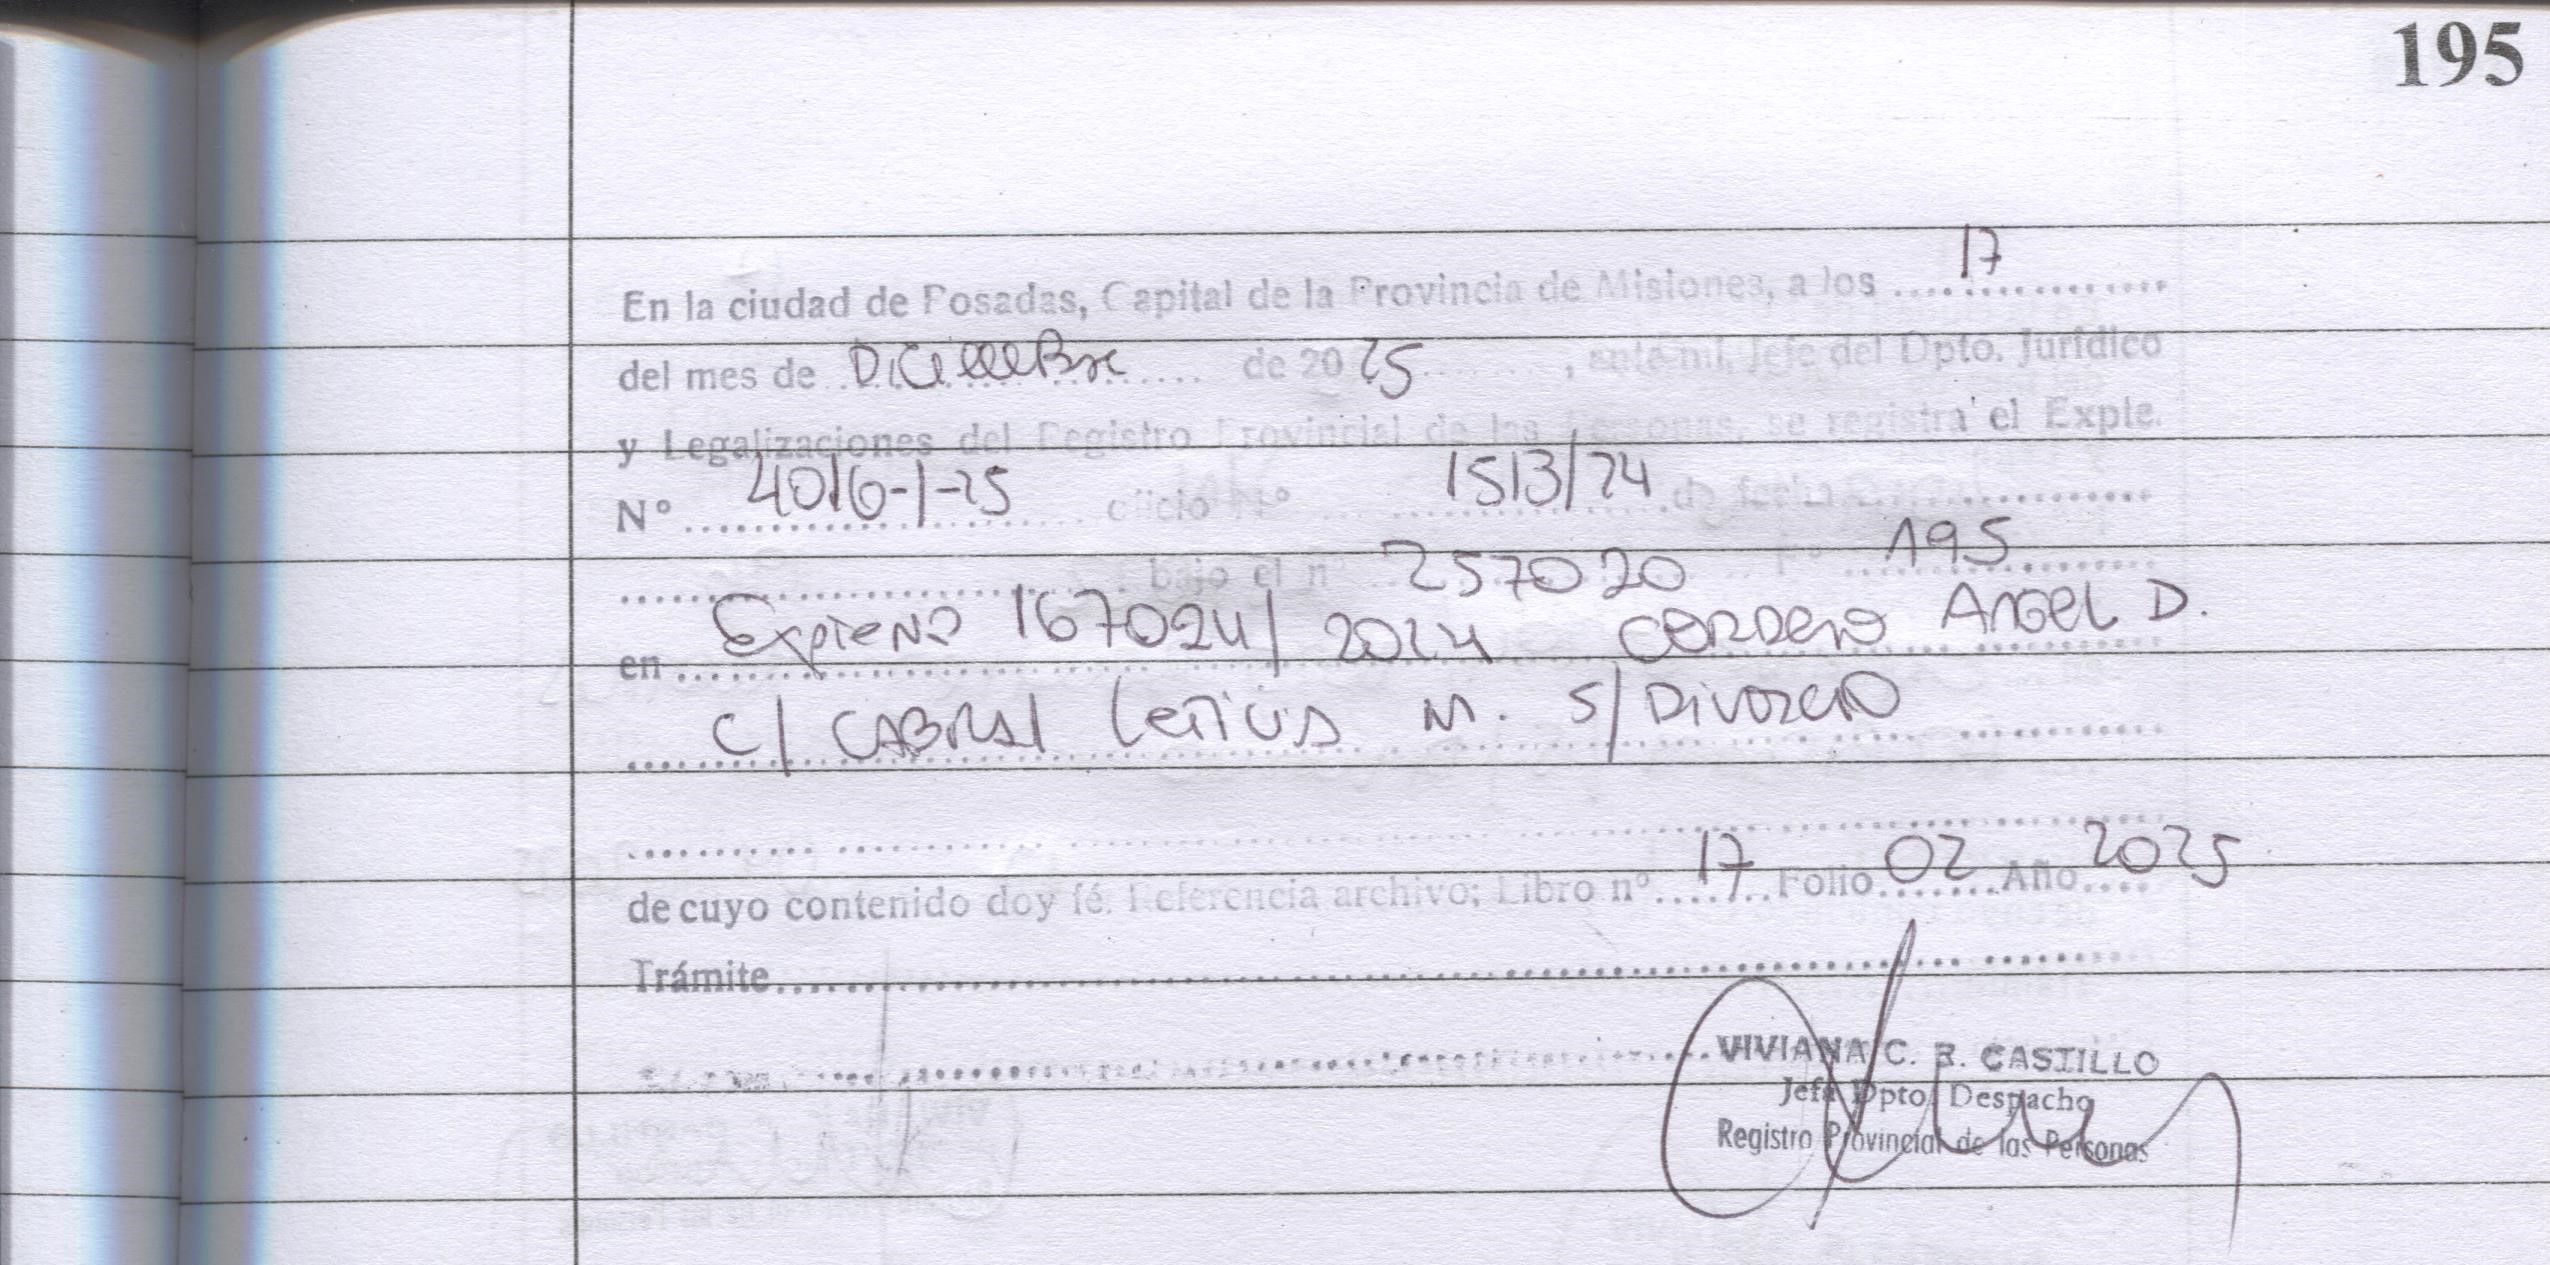 195
En la ciudad de Posadas, Capital de la Provincia de Misiones, a los 17
del mes de DiCiembre de 20 25, ante mi, Jefe del Dpto. Jurídico
y Legalizaciones del Registro Provincial de las Personas, se registra el Expte.
N° 4016-1-25 oficio N° 1513/24 de fecha
bajo el n° 257020 F° 195
en Expiene 167024/2024 CORDERO ANGEL D.
C/ CABRAL Leticia M. S/ Divorcio
de cuyo contenido doy fé. Referencia archivo; Libro n° 17 Folio 02 Año 2025
Trámite
VIVIANA C. R. CASTILLO
Jefa Dpto. Despacho
Registro Provincial de las Personas